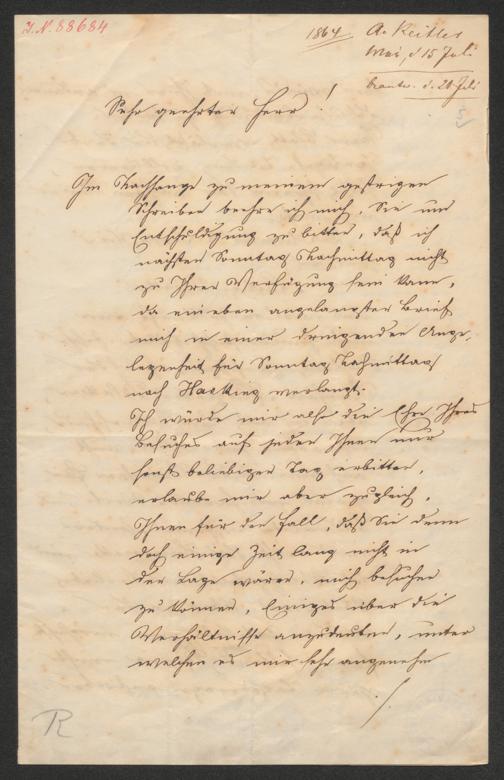 I.N. 88684
1864 A. Keitler
Wien, d 15 Juli
beantw. d. 20 Juli
Sehr geehrter Herr!
Im Nachhange zu meinem gestrigen
Schreiben beehre ich mich, Sie um
Entschuldigung zu bitten, daß ich
nächsten Sonntag Nachmittag nicht
zu Ihrer Verfügung sein kann,
da ein eben angelangter Brief
mich in einer dringenden Ange-
legenheit für Sonntag Nachmittag
nach Hacking verlangt.
Ich würde mir also die Ehre Ihres
Besuches auf jeden Ihnen nur
sonst beliebigen Tag erbitten,
erlaube mir aber zugleich,
Ihnen für den Fall, daß Sie denn
doch einige Zeit lang nicht in
der Lage wären, mich besuchen
zu können, Einiges über die
Verhältnisse anzudeuten, unter
welchen es mir sehr angenehm
./.
R